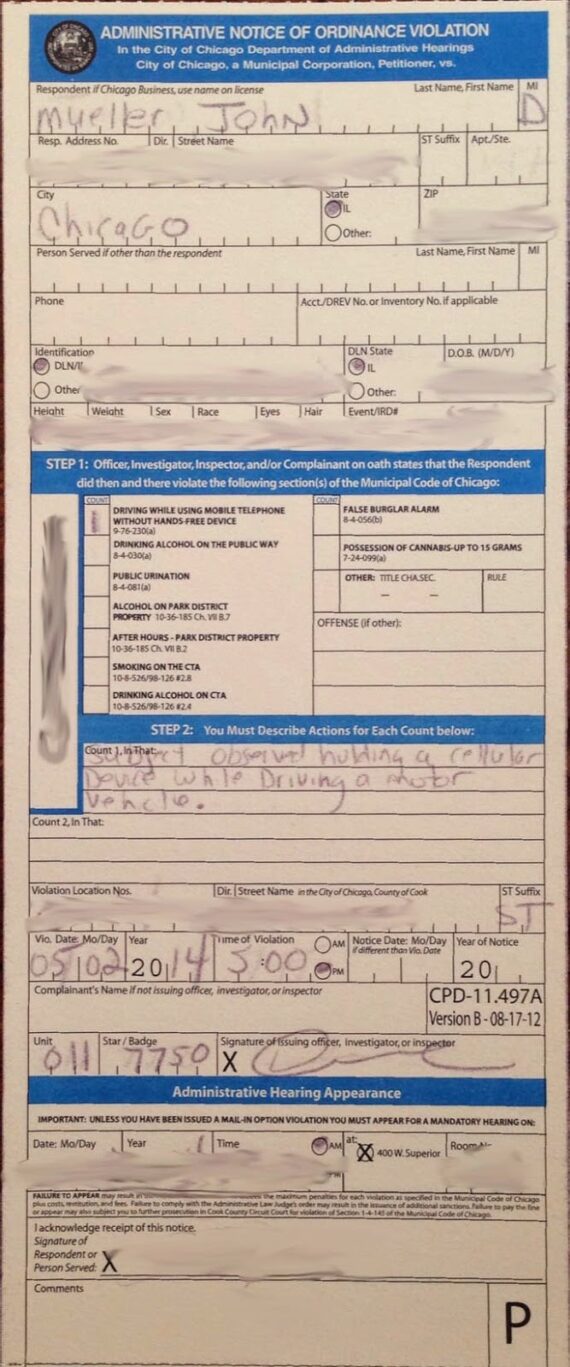 ADMINISTRATIVE NOTICE OF ORDINANCE VIOLATION
In the City of Chicago Department of Administrative Hearings
City of Chicago, a Municipal Corporation, Petitioner, vs.
Respondent if Chicago Business, use name on license Last Name, First Name MI
Mueller John D
Resp. Address No. Dir. Street Name ST Suffix Apt./Ste.
City State ZIP
Chicago IL
Other:
Person Served if other than the respondent Last Name, First Name MI
Phone Acct./DREV No. or Inventory No. if applicable
Identification DLN State D.O.B. (M/D/Y)
DLN/I IL
Other Other:
Height Weight Sex Race Eyes Hair Event/IRD#
STEP 1: Officer, Investigator, Inspector, and/or Complainant on oath states that the Respondent
did then and there violate the following section(s) of the Municipal Code of Chicago:
COUNT
DRIVING WHILE USING MOBILE TELEPHONE
WITHOUT HANDS-FREE DEVICE
9-76-230(a)
DRINKING ALCOHOL ON THE PUBLIC WAY
8-4-030(a)
PUBLIC URINATION
8-4-081(a)
ALCOHOL ON PARK DISTRICT
PROPERTY 10-36-185 Ch. VII B.7
AFTER HOURS - PARK DISTRICT PROPERTY
10-36-185 Ch. VII B.2
SMOKING ON THE CTA
10-8-526/98-126 #2.8
DRINKING ALCOHOL ON CTA
10-8-526/98-126 #2.4
COUNT
FALSE BURGLAR ALARM
8-4-056(b)
POSSESSION OF CANNABIS-UP TO 15 GRAMS
7-24-099(a)
OTHER: TITLE CHA.SEC. RULE
– –
OFFENSE (if other):
STEP 2: You Must Describe Actions for Each Count below:
Count 1, In That:
Subject observed holding a cellular
Device while Driving a motor
Vehicle.
Count 2, In That:
Violation Location Nos. Dir. Street Name in the City of Chicago, County of Cook ST Suffix
ST
Vio. Date: Mo/Day Year Time of Violation AM Notice Date: Mo/Day Year of Notice
if different than Vio. Date
05 02 2014 3:00 PM 20
Complainant's Name if not issuing officer, investigator, or inspector
CPD-11.497A
Version B - 08-17-12
Unit Star / Badge Signature of Issuing officer, Investigator, or inspector
011 7750 X
Administrative Hearing Appearance
IMPORTANT: UNLESS YOU HAVE BEEN ISSUED A MAIL-IN OPTION VIOLATION YOU MUST APPEAR FOR A MANDATORY HEARING ON:
Date: Mo/Day Year Time AM at: X 400 W. Superior
PM
FAILURE TO APPEAR may result in the maximum penalties for each violation as specified in the Municipal Code of Chicago
plus costs, restitution, and fees. Failure to comply with the Administrative Law Judge's order may result in the issuance of additional sanctions. Failure to pay the fine
or appear may also subject you to further prosecution in Cook County Circuit Court for violation of Section 1-4-145 of the Municipal Code of Chicago.
I acknowledge receipt of this notice.
Signature of
Respondent or
Person Served: X
Comments
P